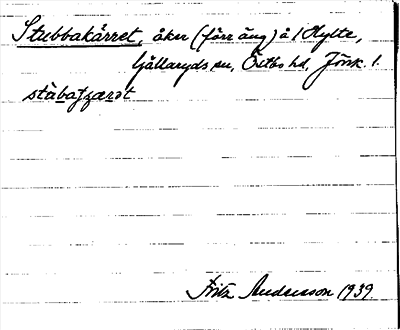 Stubbakärret, åker (förr äng) å 1 Hylte,
Gällaryds sn, Östbo hd, Jönk. l.
Fritz Andersson 1939.